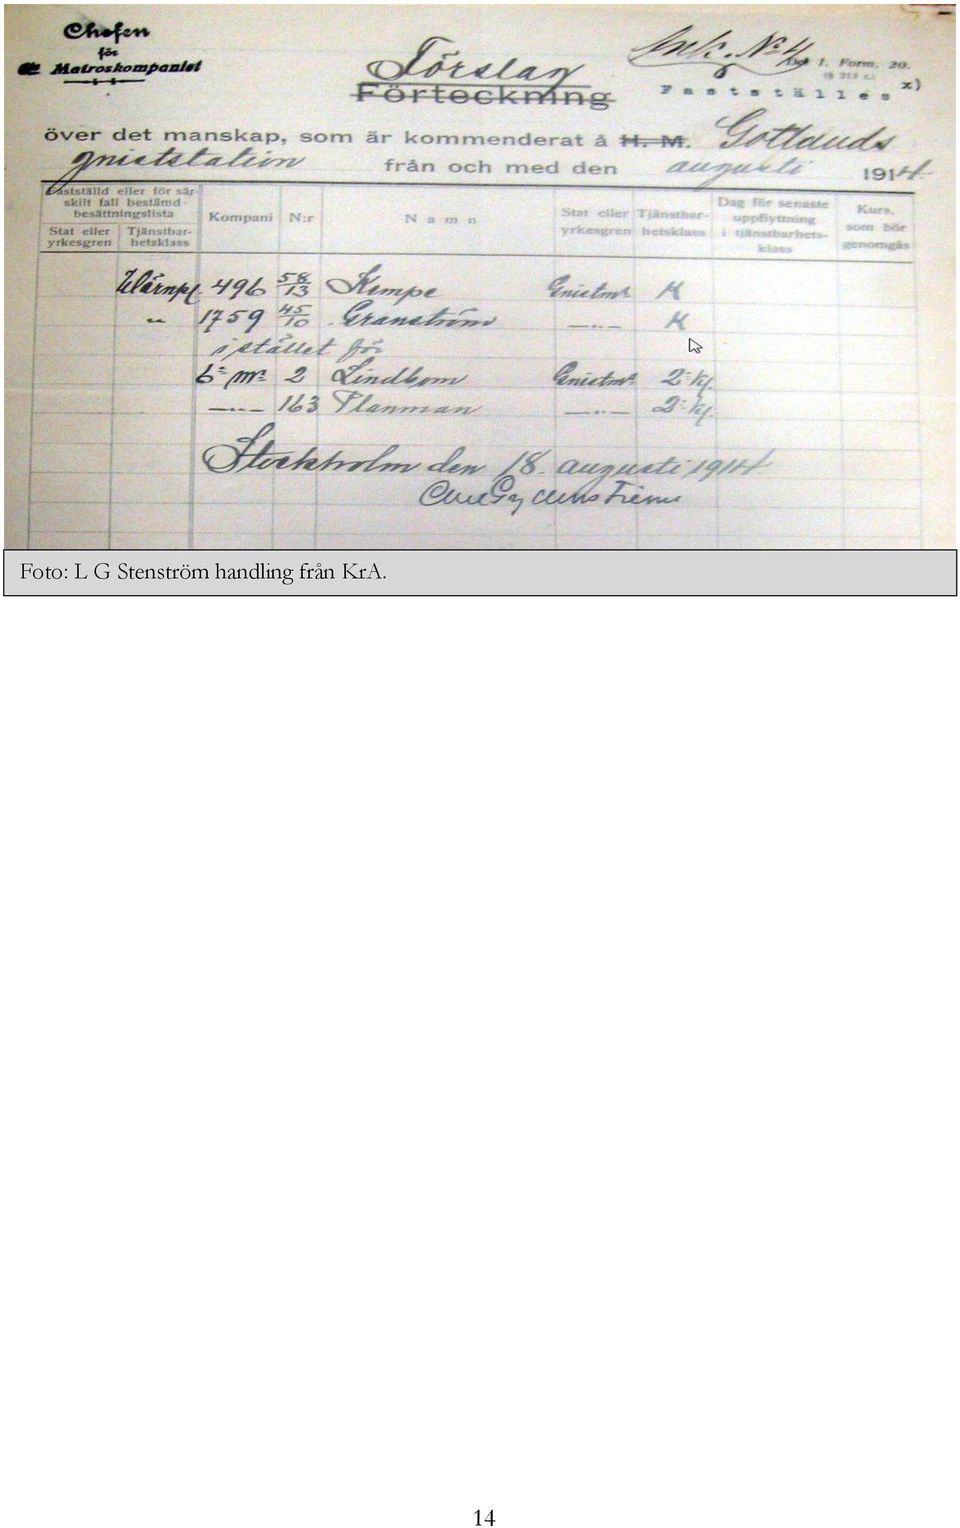 Chefen
för
Matroskompaniet
Förslag
Förteckning
Ink. Nº 4
Del 1. Form. 20.
(§ 213 r.)
Fastställes x)
över det manskap, som är kommenderat å H. M. Gotlands
gniststation från och med den augusti 1914
Fastställd eller för särskilt fall bestämd besättningslista
Stat eller yrkesgren
Tjänstbarhetsklass
Kompani
N:r
Namn
Stat eller yrkesgren
Tjänstbarhetsklass
Dag för senaste uppflyttning i tjänstbarhetsklass
Kurs, som bör genomgås
Wärnpl. 496 58/13 Kempe Gnistmt K
" 1759 45/10 Granström —"— K
i stället för
6: mt 2 Lindbom Gnistmt 2: Kl.
—"— 163 Planman —"— 2: Kl.
Stockholm den 18 augusti 1914
Foto: L G Stenström handling från KrA.
14